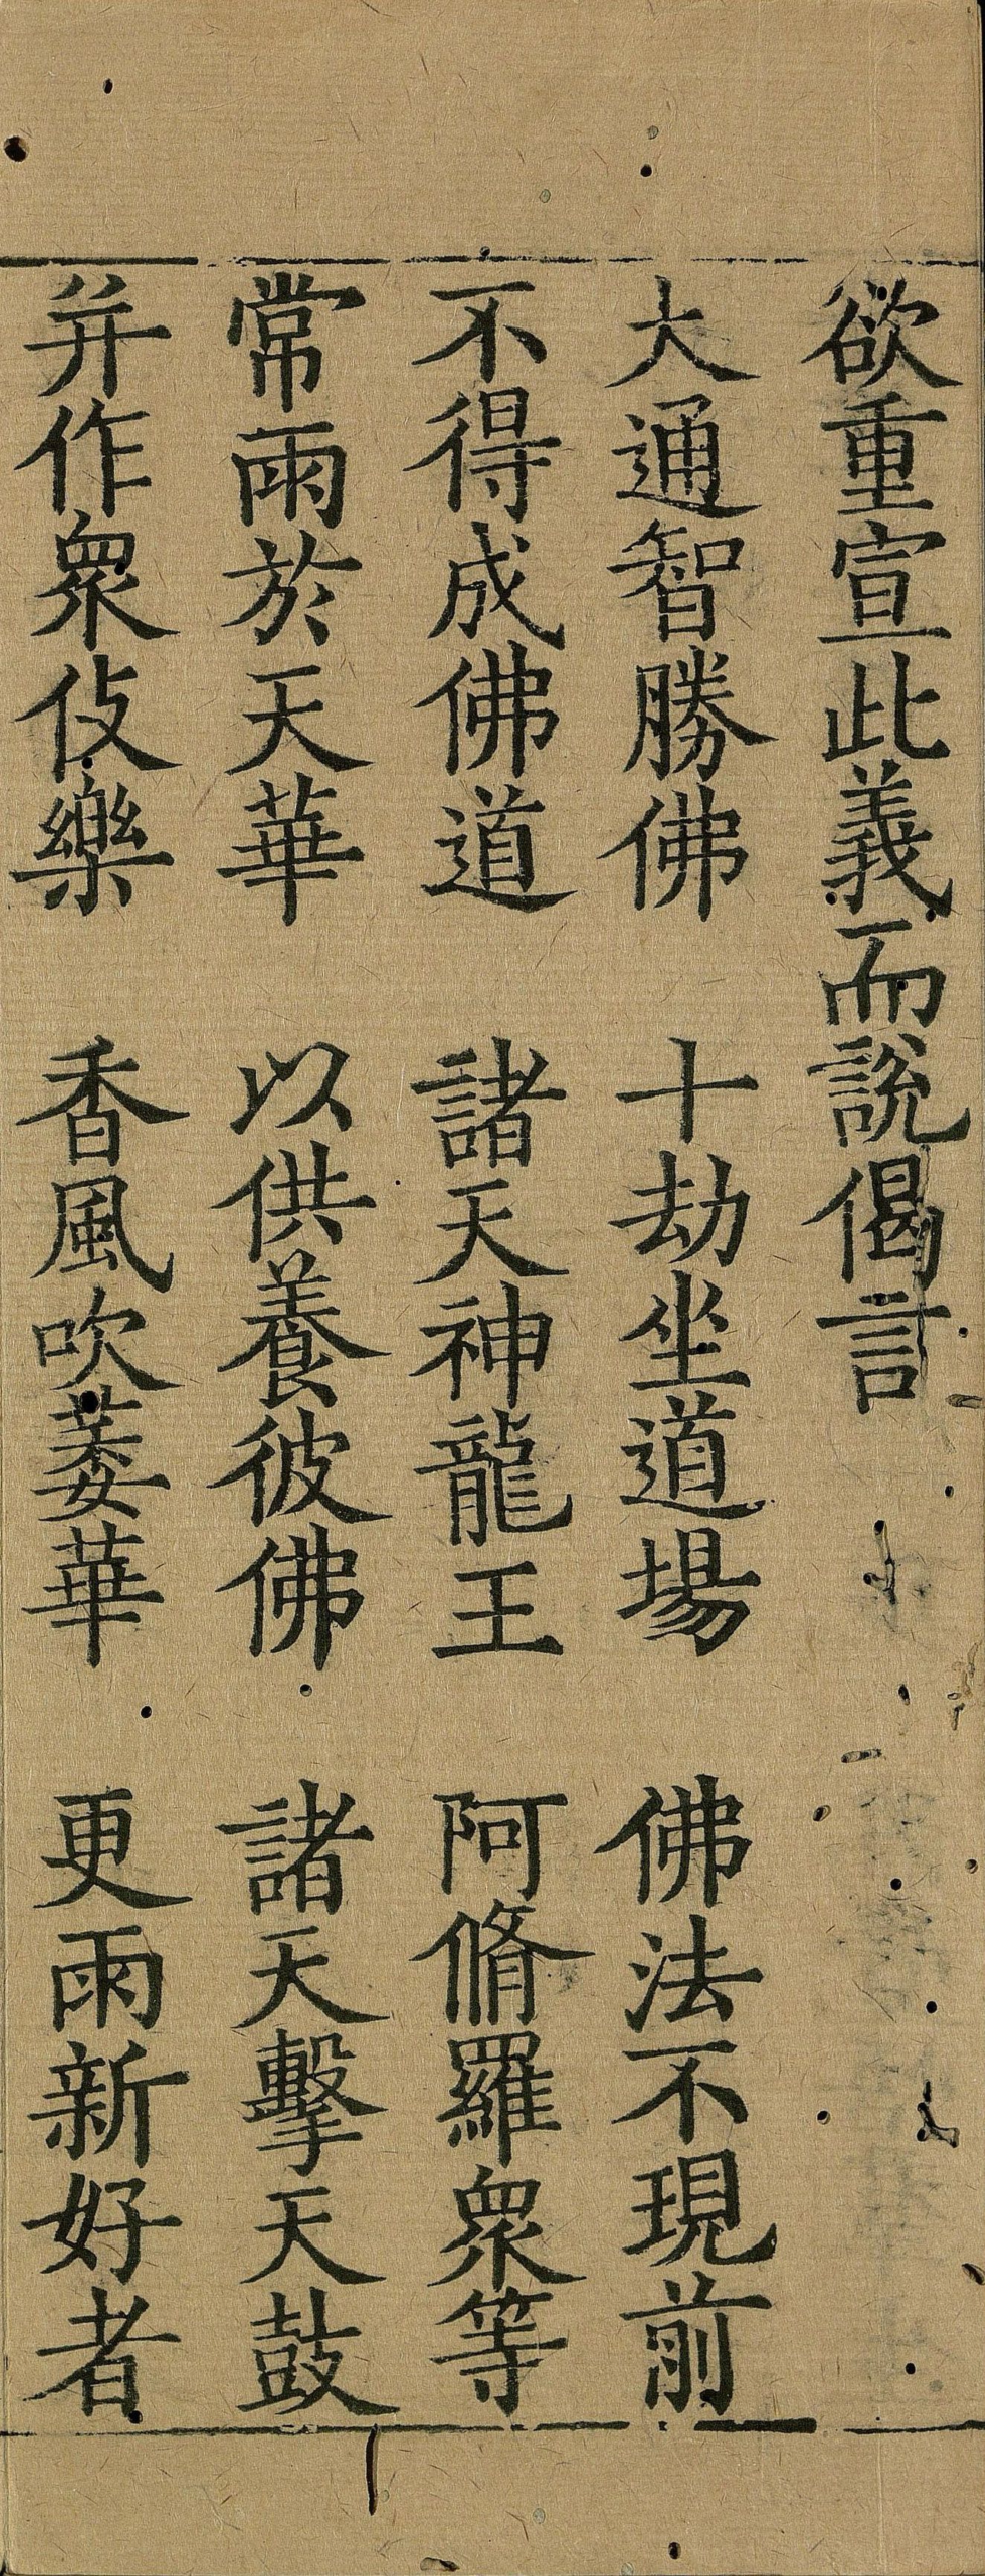 欲重宣此義而說偈言
大通智勝佛　十劫坐道場　佛法不現前
不得成佛道　諸天神龍王　阿脩羅衆等
常雨於天華　以供養彼佛　諸天擊天鼓
并作衆伎樂　香風吹萎華　更雨新好者